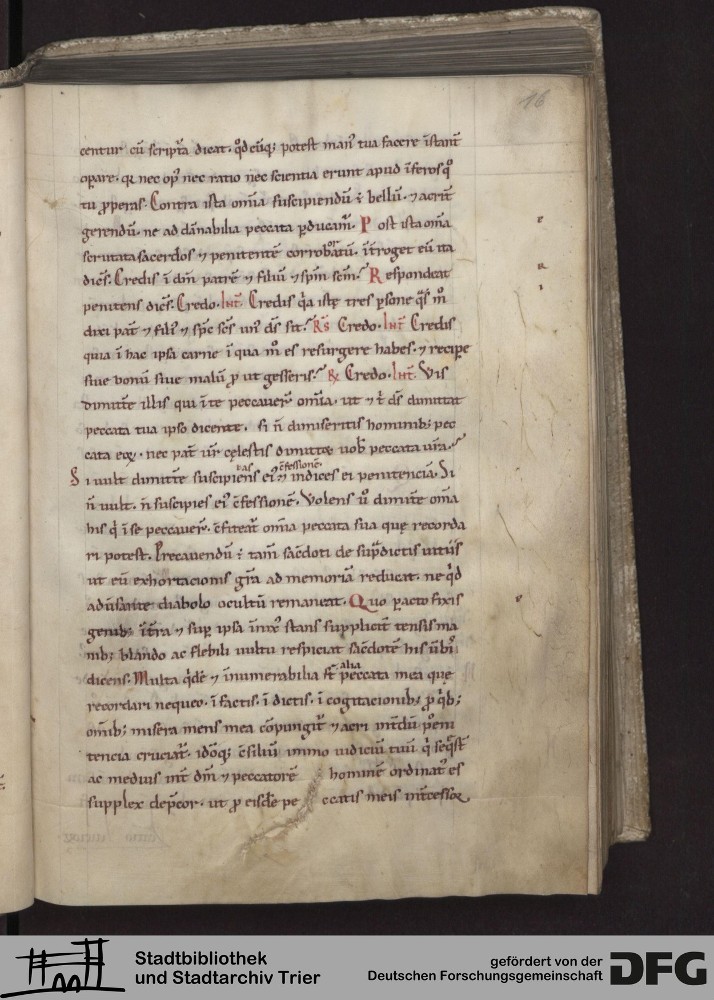 16
centur cū scripta dicat. qđcūq; potest man᷒ tua facere īstant᷒
oꝑare. qr nec op᷒ nec ratio nec scientia erunt apud īferos qͦ
tu ꝓperas. Contra ista om̄ia suscipiendū ÷ bellū. ⁊ acrit᷒
gerendū. ne ad dānabilia peccata ꝑducam᷒. Post ista om̄a
scrutata sacerdos ⁊ penitentē corrobatū. īt᷒roget eū ita
dicēs. Credis ī dm̄ patrē ⁊ filiū ⁊ spm̄ scm̄. Respondeat
penitens dicēs. Credo. Int̄. Credis q̄a istę tres ꝑsonę qͣs m̊
dixi pat᷒ ⁊ fili᷒ ⁊ spc̄ scs̄ un᷒ ds̄ sit. Rs̄ Credo. Int̄ Credis
quia ī hac ipsa carne ī qua m̊ es resurgere habes. ⁊ recipe
siue bonū siue malū ꝓ ut gesseris. R Credo. Int̄. Vis
dimitt᷒e illis qui ī te peccauer᷒ om̄ia. ut ⁊ t᷒ ds̄ dimittat
peccata tua ipso dicente. Si n̄ dimiseritis hominib; pec
cata eoꝝ. nec pat᷒ ur̄ cęlestis dimittet uob᷒ peccata ur̄a.
Si uult dimitt᷒e suscipiens ei᷒ cfessionē. ⁊ indices ei penitenciā. Si
n̄ uult. n̄ suscipies ei᷒ cfessionē. Volens ū dimitt᷒e om̄a
his q᷒ ī se peccauer᷒. cfiteat᷒ om̄ia peccata sua quę recorda
ri potest. Precauendū ÷ tam̄ sac̄doti de supͣdictis uitiis
ut eū exhortacionis gr̄a ad memoriā reducat. ne qͥd
adiuuante diabolo ocultū remaneat. Quo ꝑacto fixis
genib; ī tr̄a ⁊ sup᷒ ipsa īnix᷒ stans supplicit᷒ tensis ma
nib; blando ac flebili uultu respiciat sac̄dotē his ūbi᷒
dicens. Multa qͥdē ⁊ īnumerabilia st̄ alia peccata mea quę
recordari nequeo. ī factis. ī dictis. ī cogitacionib; ꝓ qͥb;
om̄ib; misera mens mea cōpungit᷒ ⁊ acri int̄dū peni
tencia cruciat᷒. idoq; csiliū immo iudiciū tuū qͥ seqst᷒
ac medius int᷒ dm̄ ⁊ peccatorē hominē ordinat᷒ es
supplex dep̄cor. ut ꝓ eisdē peccatis meis int᷒cessor
Stadtbibliothek
und Stadtarchiv Trier
gefördert von der
Deutschen Forschungsgemeinschaft
DFG